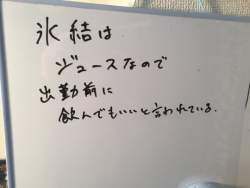 氷結は
ジュースなので
出勤前に
飲んでもいいと言われている.